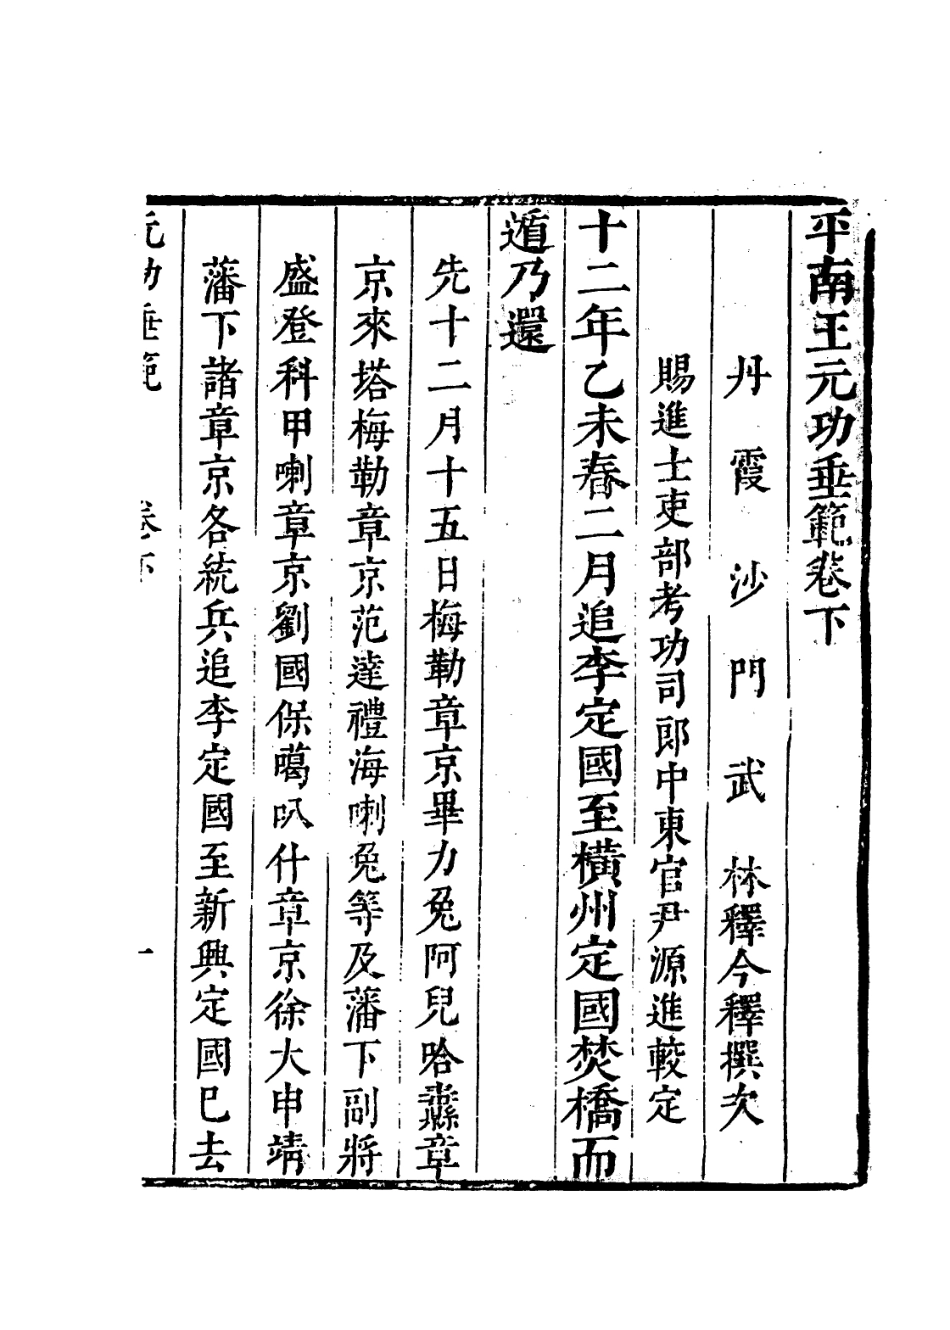 平南王元功垂範卷下
丹霞沙門武林釋今釋撰次
賜進士吏部考功司郎中東官尹源進較定
十二年乙未春二月追李定國至橫州定國焚橋而
遁乃還
先十二月十五日梅勒章京畢力兔阿兒哈纛章
京來塔梅勒章京范達禮海喇兔等及藩下副將
盛登科甲喇章京劉國保噶叭什章京徐大申靖
藩下諸章京各統兵追李定國至新興定國已去
元功垂範 卷下 一